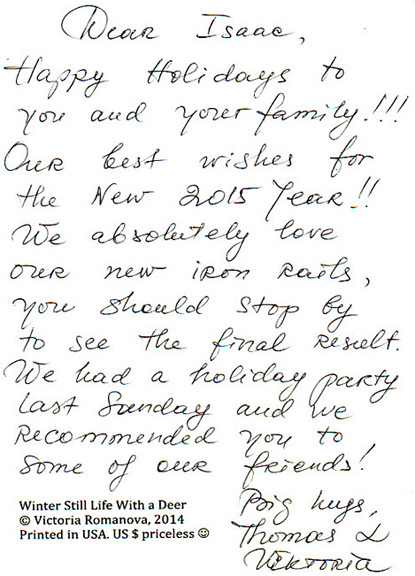 Dear Isaac,
Happy Holidays to
you and your family!!!
Our best wishes for
the New 2015 Year!!
We absolutely love
our new iron rails,
you should stop by
to see the final result.
We had a holiday party
last Sunday and we
recommended you to
some of our friends!
Big hugs,
Thomas &
Viktoria
Winter Still Life With a Deer
© Victoria Romanova, 2014
Printed in USA. US $ priceless ☺